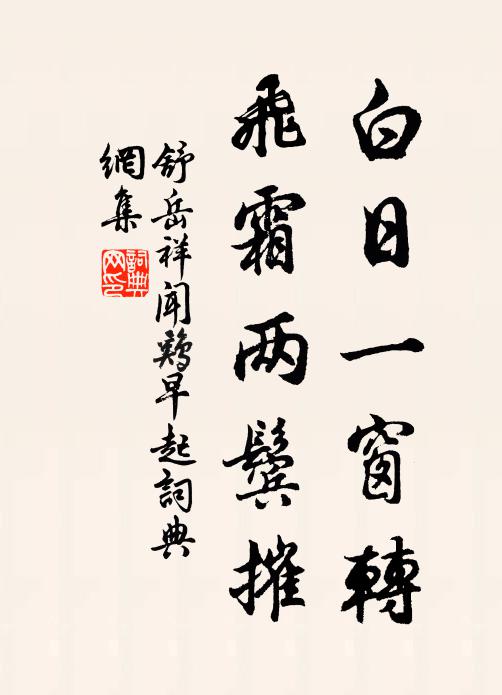 白日一窗轉
飛霜两鬓摧
舒岳祥聞鷄早起詞典
網集
詞典网印